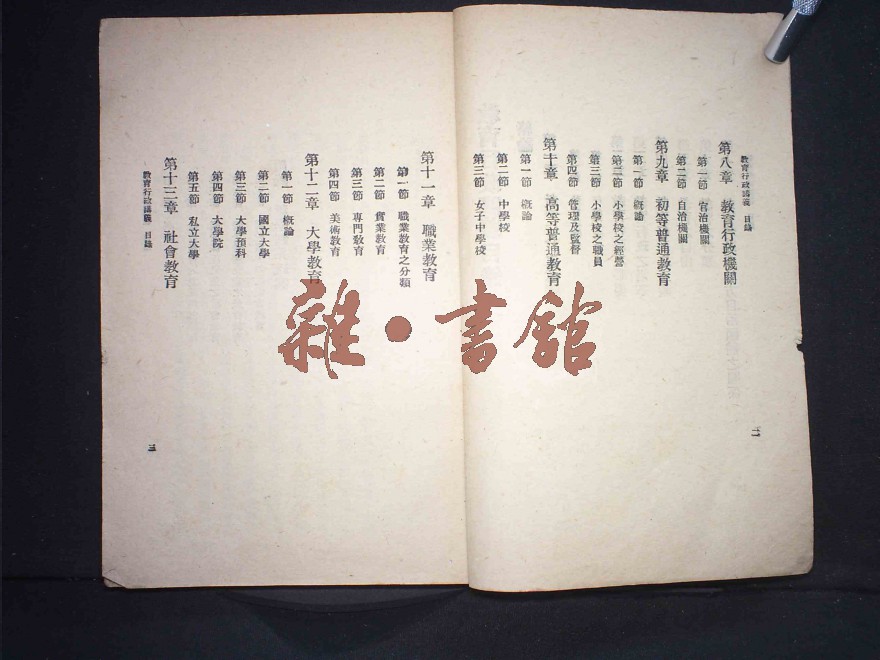 教育行政講義 目錄
第八章 教育行政機關
第一節 官治機關
第二節 自治機關
第九章 初等普通教育
第一節 概論
第二節 小學校之經營
第三節 小學校之職員
第四節 管理及監督
第十章 高等普通教育
第一節 概論
第二節 中學校
第三節 女子中學校
二
第十一章 職業教育
第一節 職業教育之分類
第二節 實業教育
第三節 專門教育
第四節 美術教育
第十二章 大學教育
第一節 概論
第二節 國立大學
第三節 大學預科
第四節 大學院
第五節 私立大學
第十三章 社會教育
教育行政講義 目錄
三
雜·書館